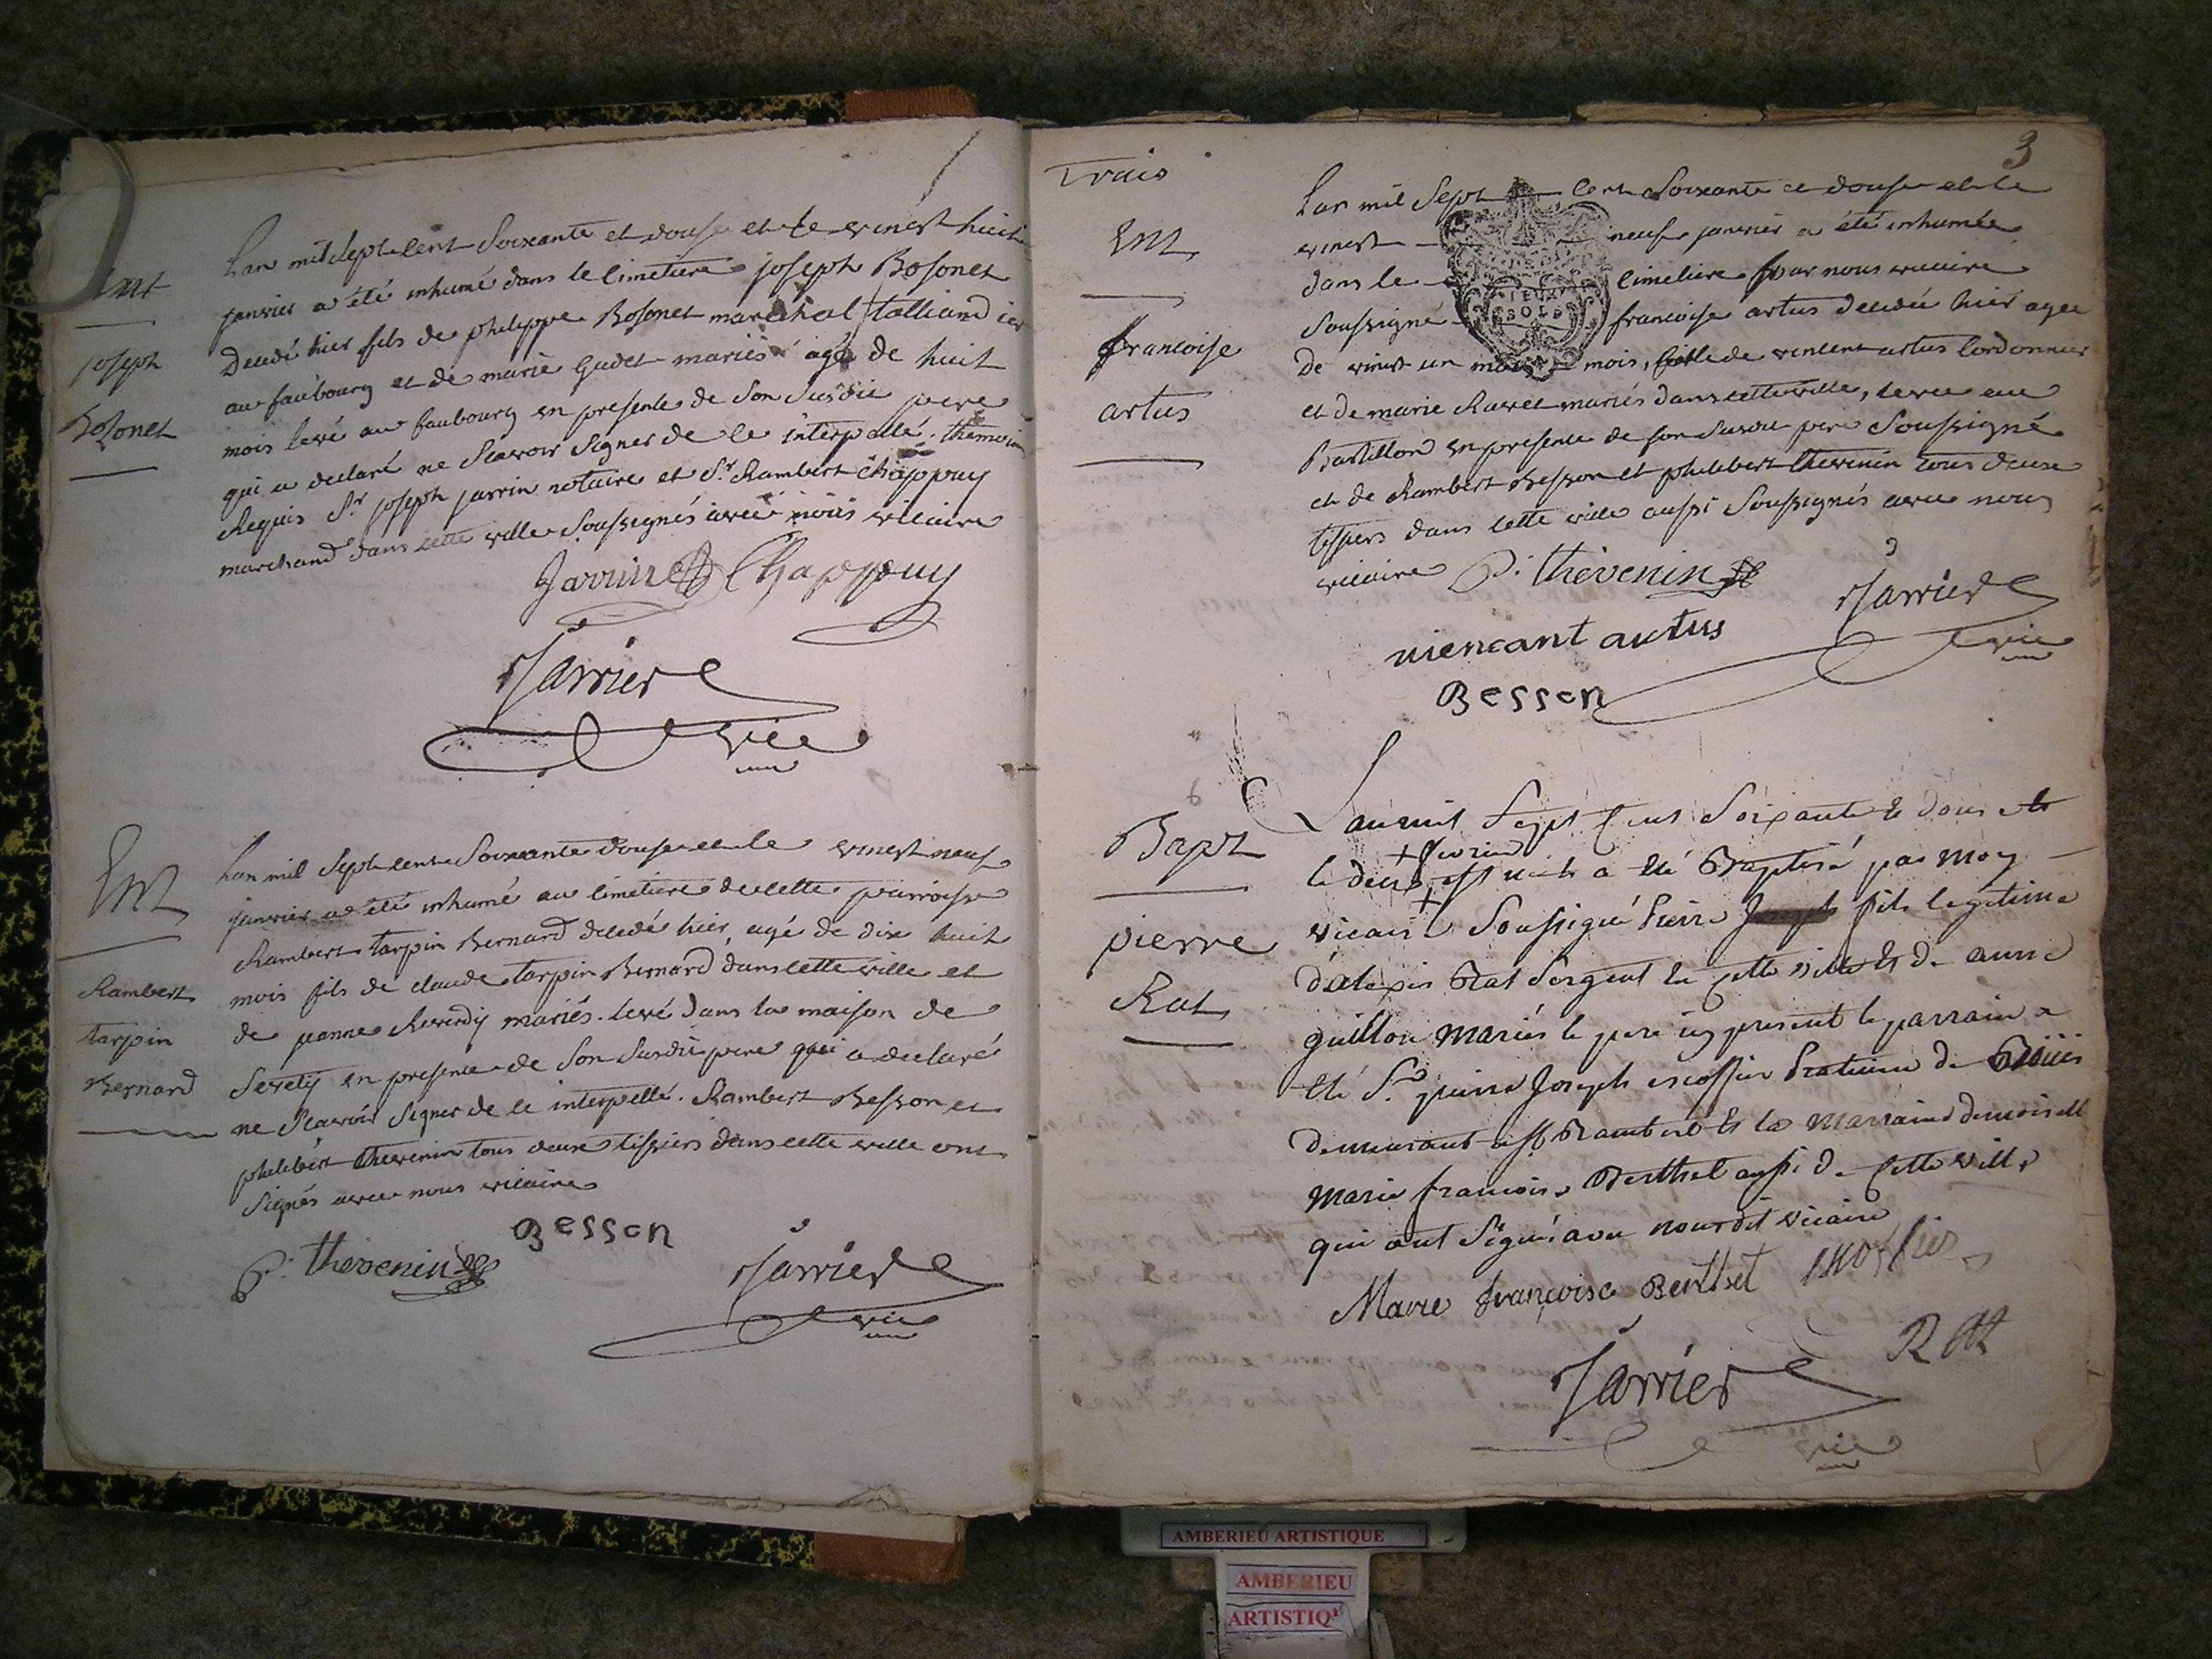 Ent
joseph
Bozonet
Lan mil sept cent soixante et douse et le vingt huit
janvier a été inhumé dans le cimetiere joseph Bosonet
Decedé hier fils de philippe Bosonet marechal talliandier
au faubourg et de marie Gudet mariés agé de huit
mois levé au faubourg en presence de son susdit pere
qui a declaré ne scavoir signer de ce interpellé. themoins
Requis Sr joseph jarrin notaire et Sr Rambert Chappuy
marchand dans cette ville soussignés avec nous vicaire
Jarrin Chappuy
Jarrier
vic
Ent
Rambert
tarpin
Bernard
Lan mil sept cent soixante douse et le vingt neuf
janvier a été inhumé au cimetiere de cette parroisse
Rambert tarpin Bernard decedé hier, agé de dix huit
mois fils de claude tarpin Bernard dans cette ville et
de jeanne Reverdy mariés. levé dans la maison de
Sevely en presence de son susdit pere qui a declaré
ne scavoir signer de ce interpellé. Rambert Besson et
philibert thevenin tous deux tissiers dans cette ville ont
signés avec nous vicaire
P. thevenin Besson Jarrier
vic
3
Trois
Ent
francoise
artus
Lan mil sept cent soixante et douse et le
vingt neuf janvier a été inhumée
dans le cimetiere par nous vicaire
soussigné francoise artus decedée hier agee
de vingt un mois, fille de vincent artus cordonnier
et de marie Ravet mariés dans cette ville, levee au
Bastillon en presence de son susdit pere soussigné
et de Rambert Besson et philibert thevenin tous deux
tissiers dans cette ville aussi soussignés avec nous
vicaire P. thevenin Jarrier
vic
viencant artus
Besson
SOLS
Bapt
pierre
Rat
Lan mil sept cent soixante et dous et le
+ fevrier
le deux + a été Baptisé par moy
vicaire soussigné pierre fils legitime
d'alexis Rat sergent en cette ville et de anne
guillon mariés le pere icy present le parrain a
été Sr pierre Joseph escoffier praticien de
demeurant a st Rambert et la marraine demoiselle
marie francoise Berthet aussi de cette ville
qui ont signé avec nous dit vicaire
Marie françoise Berthet escoffier
Rat
Jarrier
vic
AMBERIEU ARTISTIQUE
AMBERIEU
ARTISTIQ